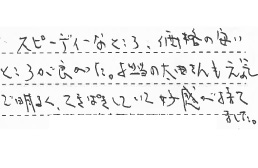 スピーディーなところ、価格の安い
ところが良かった。担当の太田さんも元気
で明るく、てきぱきしていて好感が持て
ました。